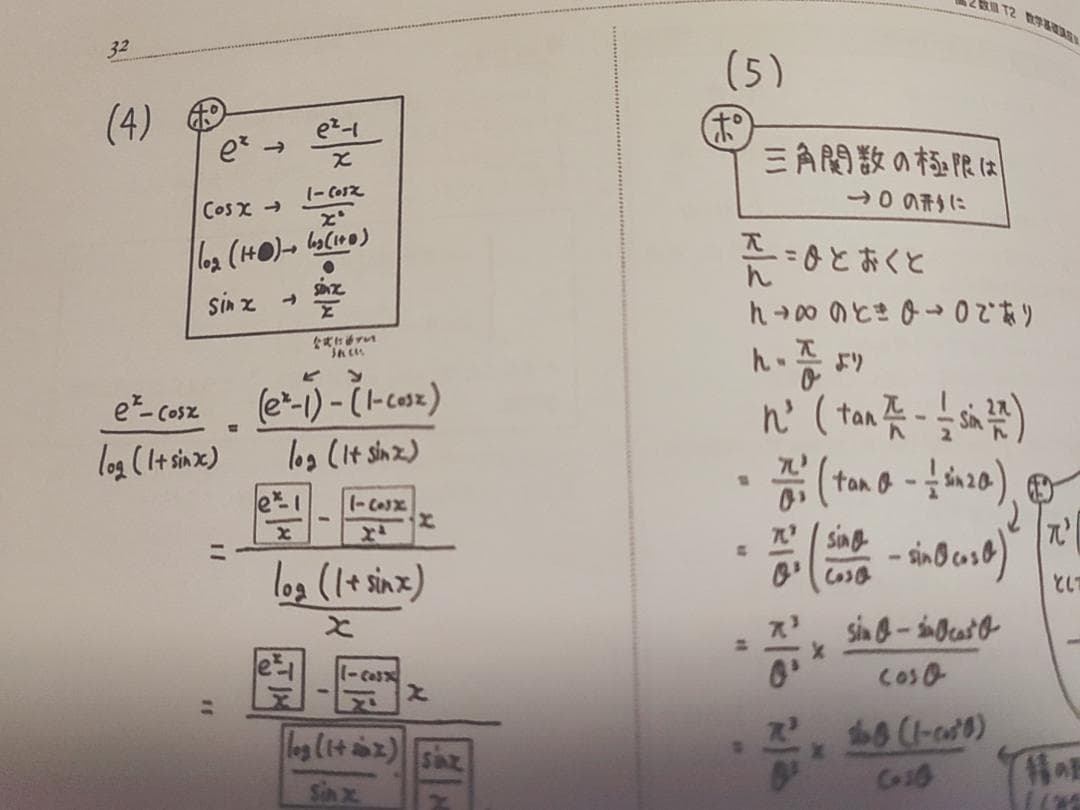 32
高2数III T2 数学基礎講座
(4)
ポ
e^x → (e^x-1)/x
cosx → (1-cosx)/x²
log(1+●) → log(1+●)/●
sinx → sinx/x
(e^x-cosx)/log(1+sinx) = ((e^x-1)-(1-cosx))/log(1+sinx)
= ((e^x-1)/x - (1-cosx)/x²・x)/(log(1+sinx)/x)
= ((e^x-1)/x - (1-cosx)/x² x)/(log(1+sinx)/sinx・sinx/x)
(5)
ポ
三角関数の極限は
→0の形に
π/n = θとおくと
n→∞のときθ→0であり
n = π/θ より
n³(tan π/n - 1/2 sin 2π/n)
= π³/θ³(tanθ - 1/2 sin2θ)
= π³/θ³(sinθ/cosθ - sinθcosθ)
= π³/θ³ × (sinθ-sinθcos²θ)/cosθ
= π³/θ³ × sinθ(1-cos²θ)/cosθ
ポ
π³